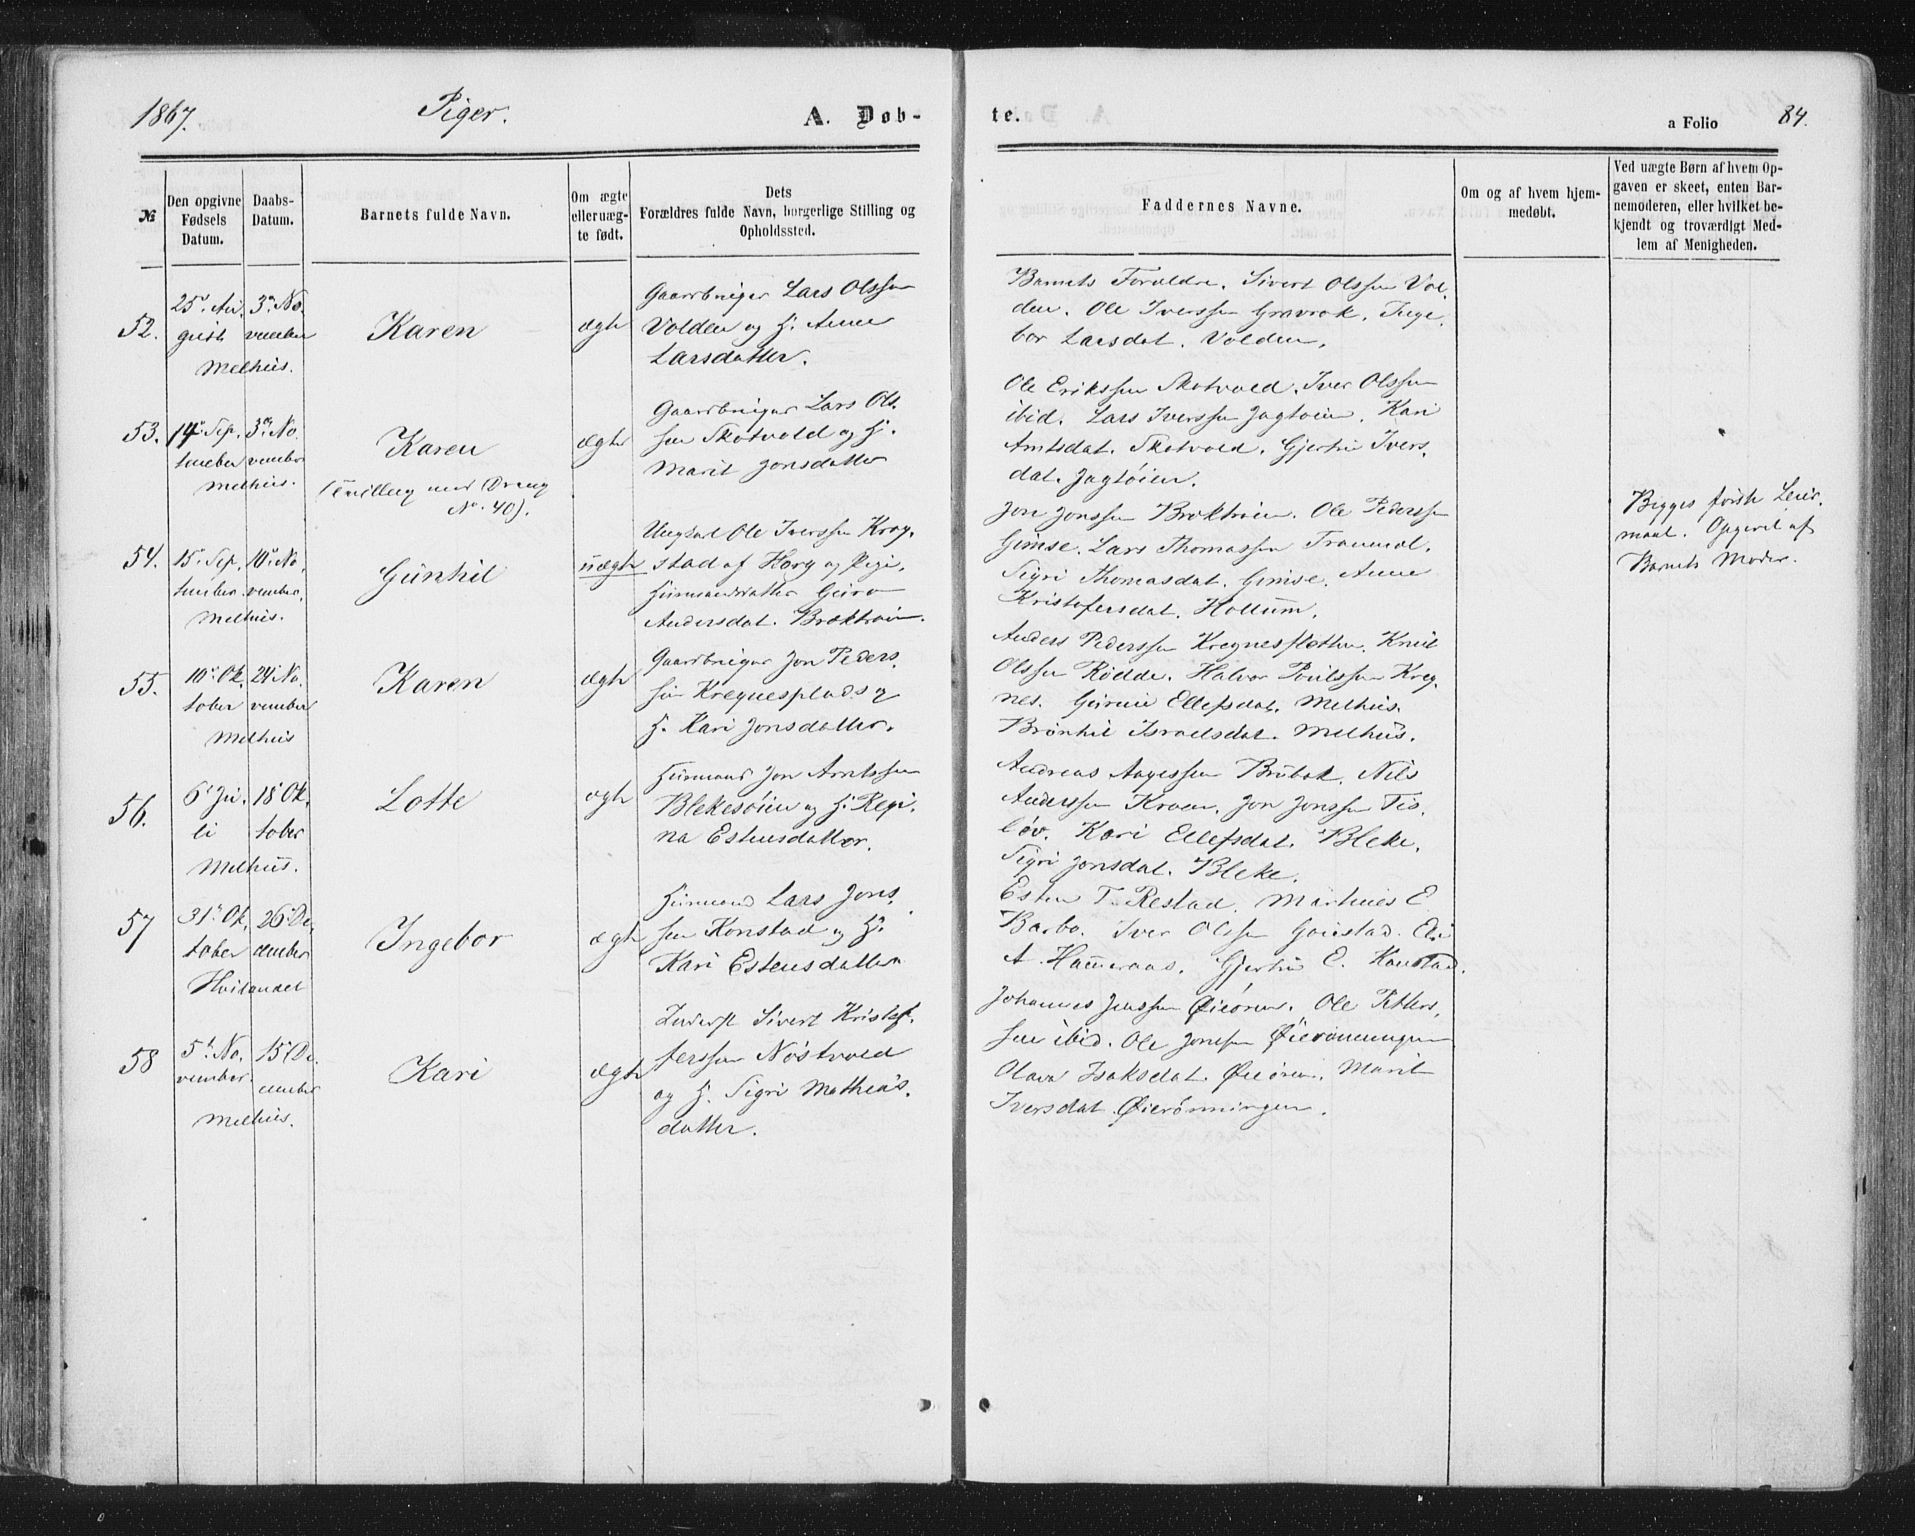 1867. Piger. A. Døb-
te. a Folio 84.
№
Den opgivne
Fødsels
Datum.
Daabs-
Datum.
Barnets fulde Navn.
Om ægte
eller uæg-
te født.
Dets
Forældres fulde Navn, borgerlige Stilling og
Opholdssted.
Faddernes Navne.
Om og af hvem hjem-
medøbt.
Ved uægte Børn af hvem Op-
gaven er skeet, enten Bar-
nemoderen, eller hvilket be-
kjendt og troværdigt Med-
lem af Menigheden.
52.
25de Au-
gust
3de No-
vember
Melhus.
Karen
ægte
Gaardbruger Lars Olssen
Volden og H. Anne
Larsdatter.
Barnets Forældre. Sivert Olssen Vol-
den. Ole Iverssen Gravrok. Inge-
bor Larsdat. Volden.
53.
14de Sep-
tember
3de No-
vember
Melhus.
Karen
(Tvilling med Dreng
No. 40).
ægte
Gaardbruger Lars Ols-
sen Skotvold og H.
Marit Jonsdatter
Ole Erikssen Skotvold. Iver Olssen
ibid. Lars Iverssen Jagtøien. Kari
Arntsdat. Skotvold. Gjertru Ivers-
dat. Jagtøien.
54.
15de Sep-
tember.
10de No-
vember.
Melhus.
Gunhil
uægte
Ungkarl Ole Iverssen Krog-
stad af Horg og Pige,
Huusmandsdatter Guro
Andersdat. Brøktrøen.
Jon Jonssen Brøktrøen. Ole Pederssen
Gimse. Lars Thomassen Tranmel.
Sigri Thomasdat. Gimse. Anne
Kristofersdat. Hollum.
Begges første Leier-
maal. Opgivet af
Barnets Moder.
55.
10de Ok-
tober
24de No-
vember
Melhus
Karen
ægte
Gaardbruger Jon Peders-
sen Kregnesplads og
H. Kari Jonsdatter.
Anders Pederssen Kregnesfletten. Knut
Olssen Rødde. Halvor Poulssen Kreg-
nes. Gurine Ellefsdat. Melhus.
Brønhil Israelsdat. Melhus.
56.
6te Ju-
li
18de Ok-
tober
Melhus.
Lotte
ægte
Huusmand Jon Arntssen
Blekesøien og H. Regi-
na Estensdatter.
Andreas Aagessen Brubak. Nils
Anderssen Kroen. Jon Jonssen Tis-
løv. Kari Ellefsdat. Bleke.
Sigri Jonsdat. Bleke.
57
31te Ok-
tober
26de De-
cember
Hølandet
Ingebor
ægte
Huusmand Lars Jons-
sen Konstad og H.
Kari Estensdatter
Esten T. Restad. Marthues E
Barbo. Iver Olssen Gaustad. Eli
A. Hammeraas. Gjertru E. Konstad.
58
5te No-
vember.
15de De-
cember
Melhus.
Kari
ægte
Inderst Sivert Kristof-
ferssen Nøstvold
og H. Sigri Mathias-
datter.
Johannes Jenssen Øieøren. Ole Petters-
sen ibid. Ole Jonssen Øierønningen
Olava Isaksdat. Øieøren. Marit
Iversdat Øierønningen.